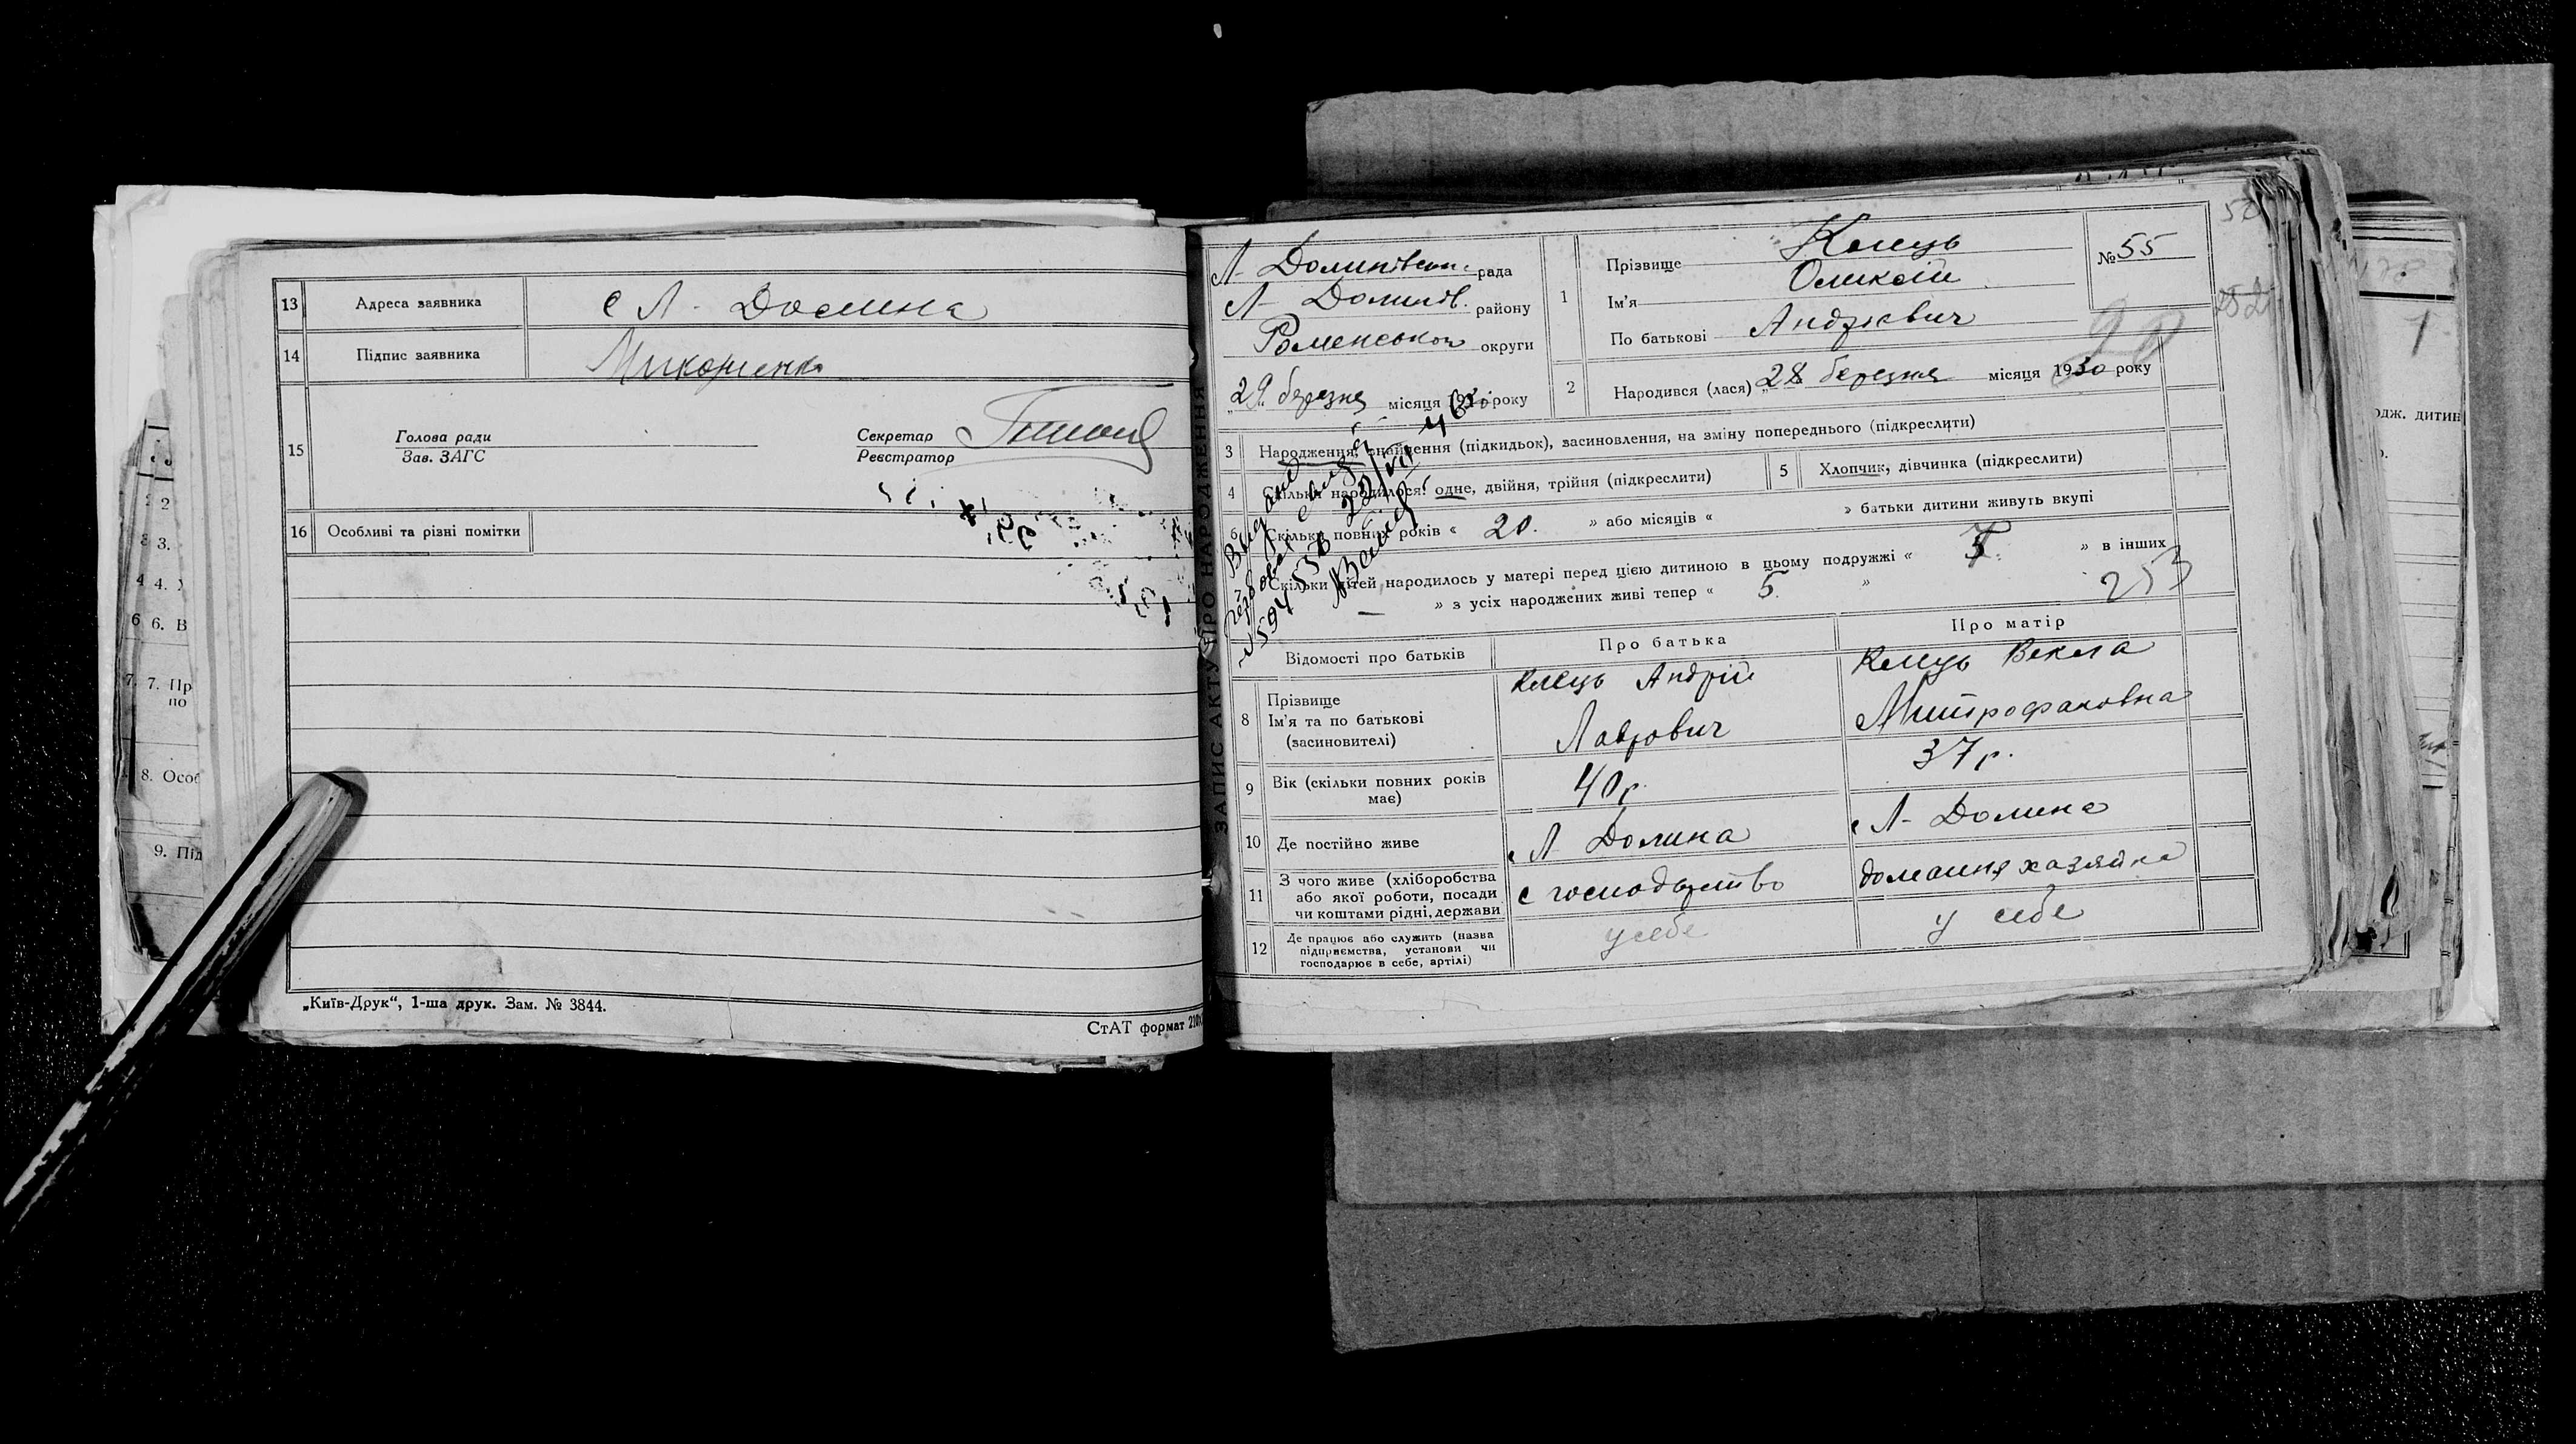 13 Адреса заявника с Л. Долина
14 Підпис заявника
15 Голова ради
Зав. ЗАГС
Секретар
Реєстратор
16 Особливі та різні помітки
„Київ-Друк“, 1-ша друк. Зам. № 3844.
СтАТ формат
ЗАПИС АКТУ ПРО НАРОДЖЕННЯ
Л- Долинівськ. рада
Л- Долинів. району
Роменської округи
29 березня місяця року
1 Прізвище
Ім'я Олексій
По батькові Андрієвич
№ 55
2 Народився (лася) 28 березня місяця 1930 року
3 Народження, знайдення (підкидьок), засиновлення, на зміну попереднього (підкреслити)
4 Скільки народилося: одне, двійня, трійня (підкреслити)
5 Хлопчик, дівчинка (підкреслити)
6 Скільки повних років « 20. » або місяців « » батьки дитини живуть вкупі
Скільки дітей народилось у матері перед цією дитиною в цьому подружжі « » в інших
— » з усіх народжених живі тепер « 5. »
253
Відомості про батьків
Про батька
Про матір
8 Прізвище
Ім'я та по батькові
(засиновителі)
Андрій
Лаврович
Векла
Митрофановна
9 Вік (скільки повних років
має)
40 р.
37 р.
10 Де постійно живе
с Л Долина
с Л- Долина
11 З чого живе (хліборобства
або якої роботи, посади
чи коштами рідні, держави
с господарство
домашня хазяйка
12 Де працює або служить (назва
підприємства, установи чи
господарює в себе, артілі)
у себе
у себе